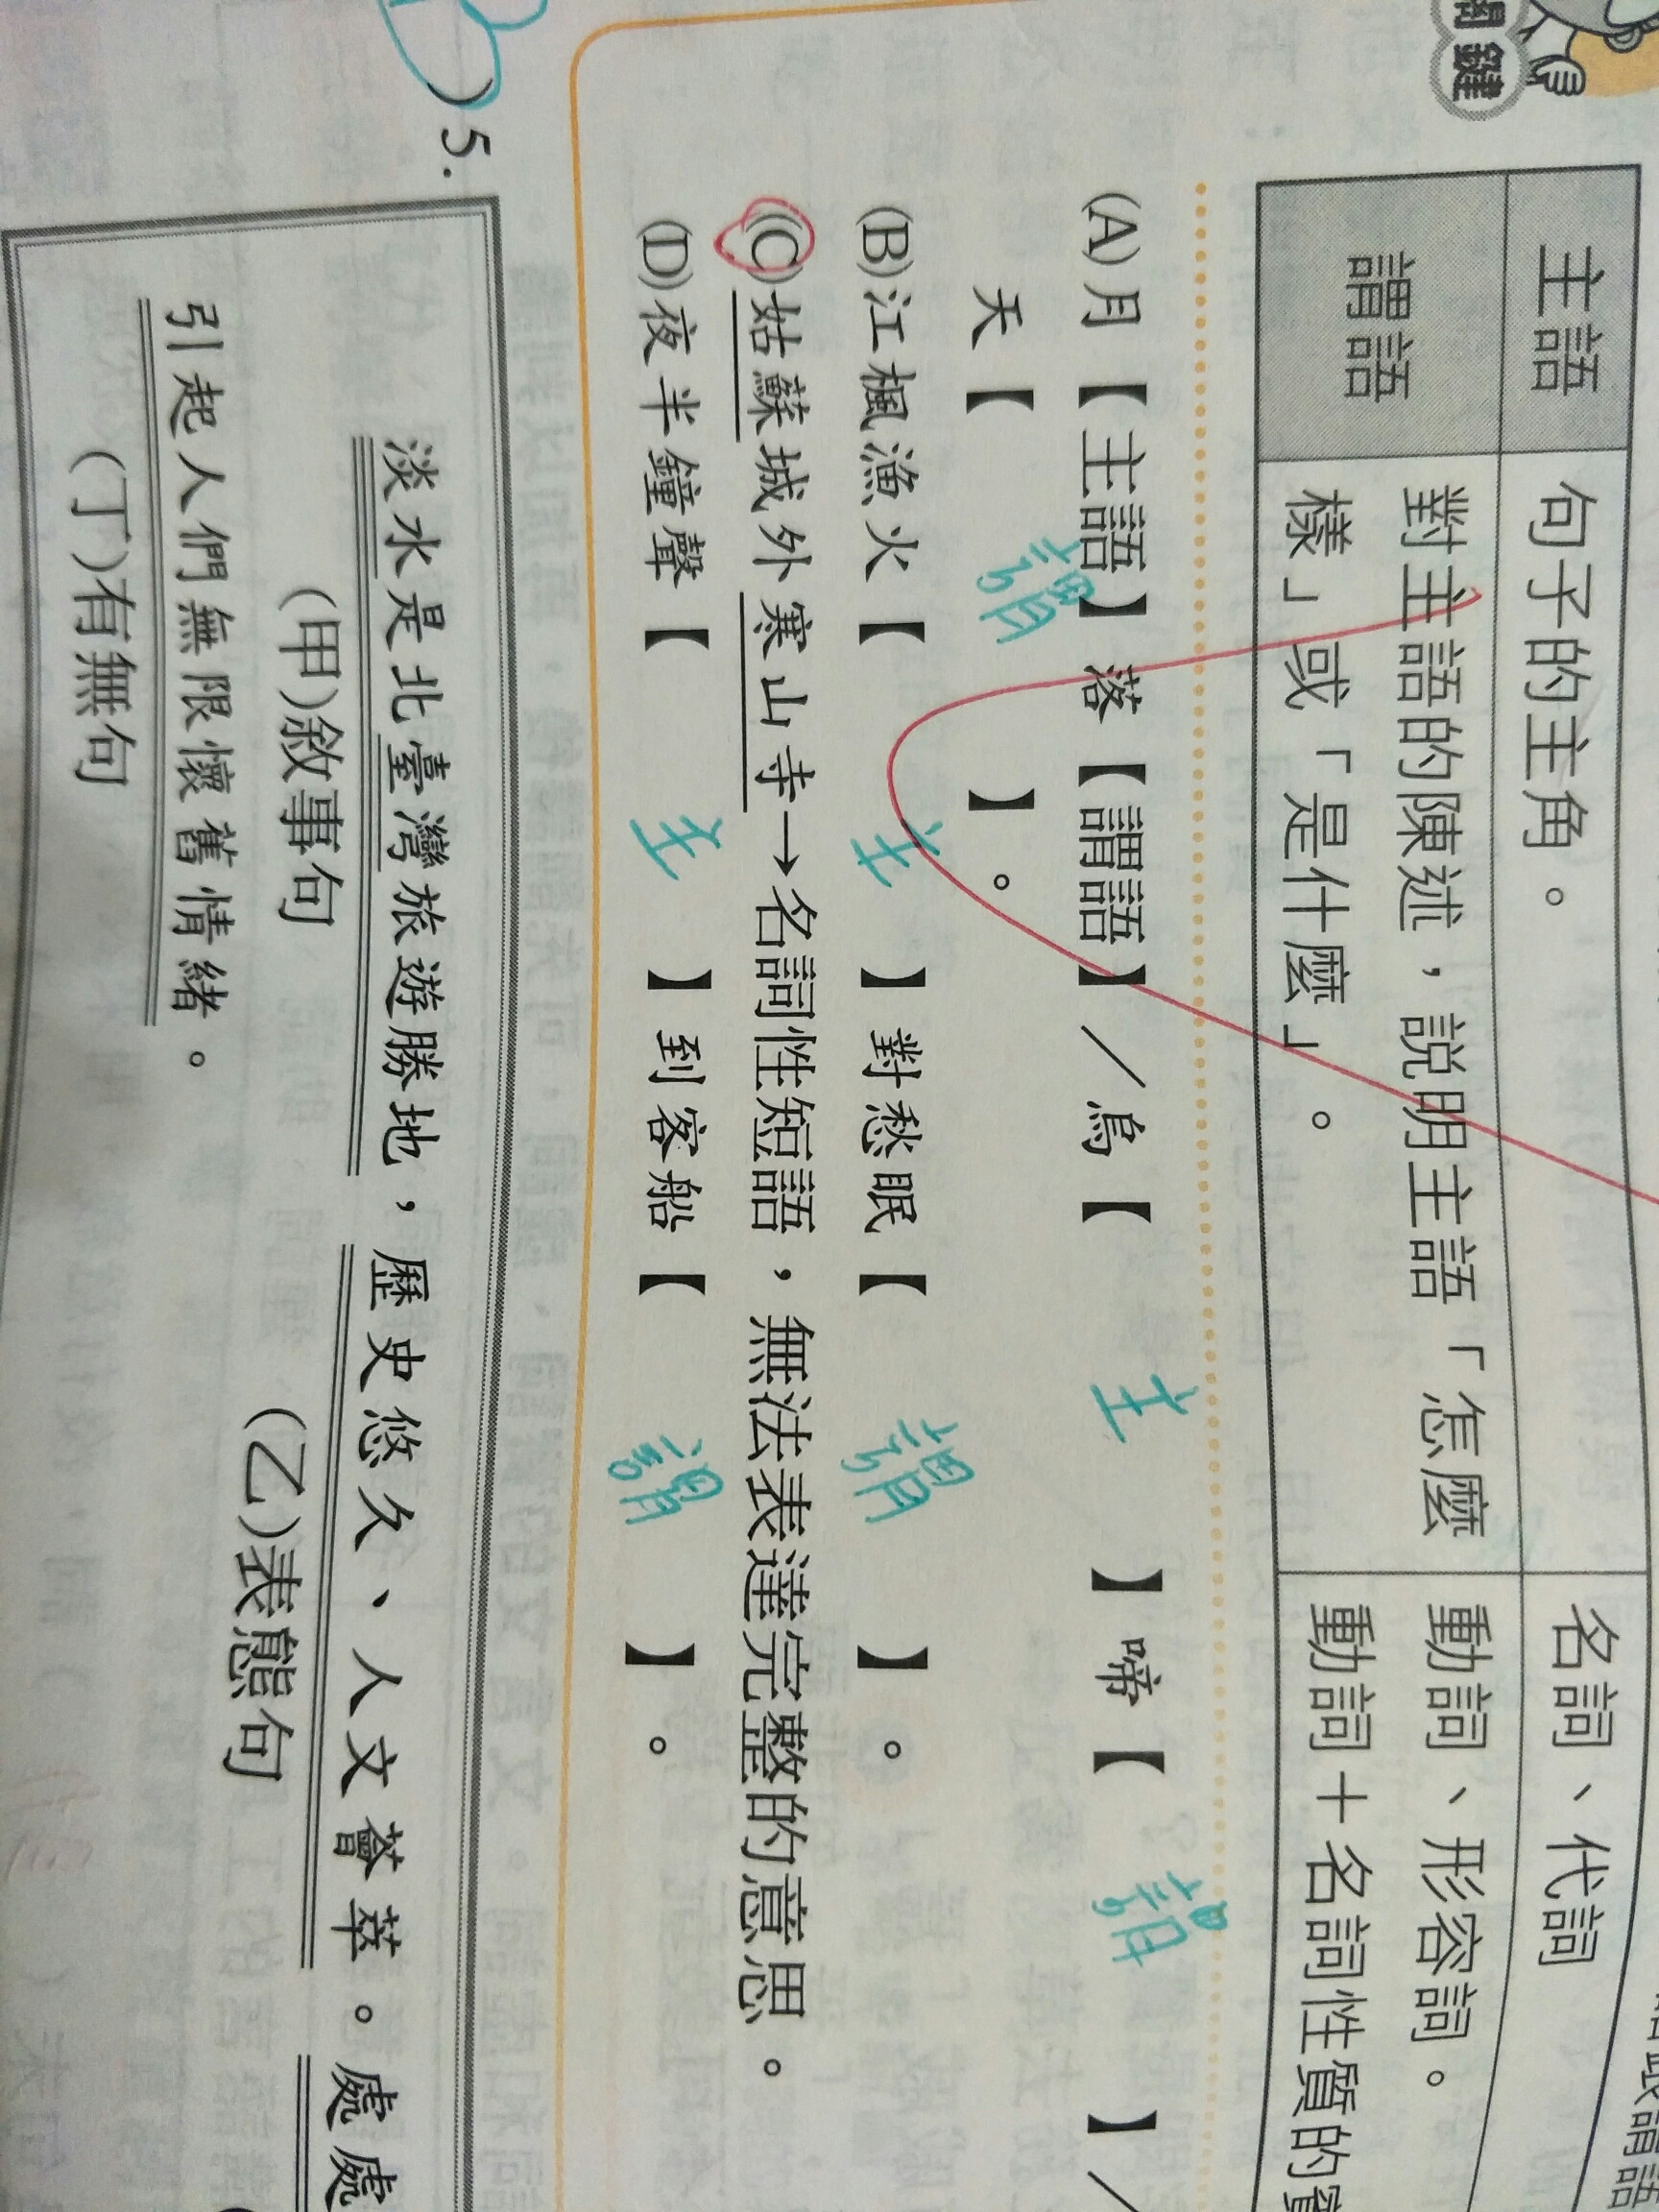 關鍵
主語 句子的主角。 名詞、代詞
謂語 對主語的陳述，說明主語「怎麼 動詞、形容詞。
樣」或「是什麼」。 動詞＋名詞性質的
(A)月【主語】落【謂語】／烏【主】啼【謂】／
天【謂】。
(B)江楓漁火【主】對愁眠【謂】。
(C)姑蘇城外寒山寺→名詞性短語，無法表達完整的意思。
(D)夜半鐘聲【主】到客船【謂】。
)5.
淡水是北臺灣旅遊勝地，歷史悠久、人文薈萃。處處
(甲)敘事句 (乙)表態句
引起人們無限懷舊情緒。
(丁)有無句